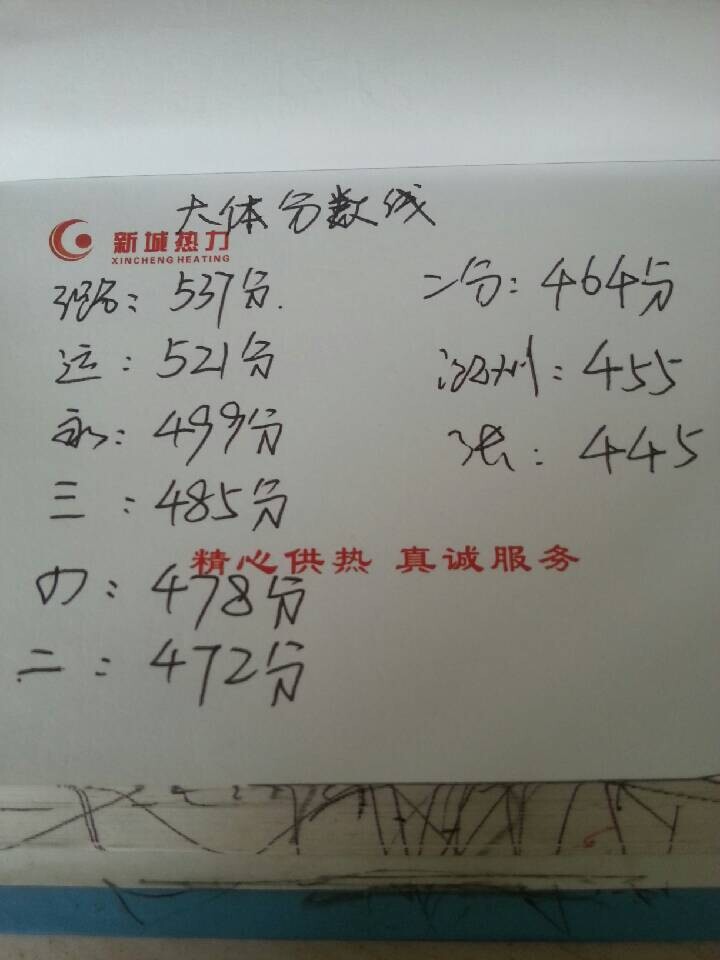 大体分数线
新城热力
XINCHENG HEATING
537分
运：521分
二分：464分
永：499分
455
三：485分
445
精心供热 真诚服务
478分
二：472分